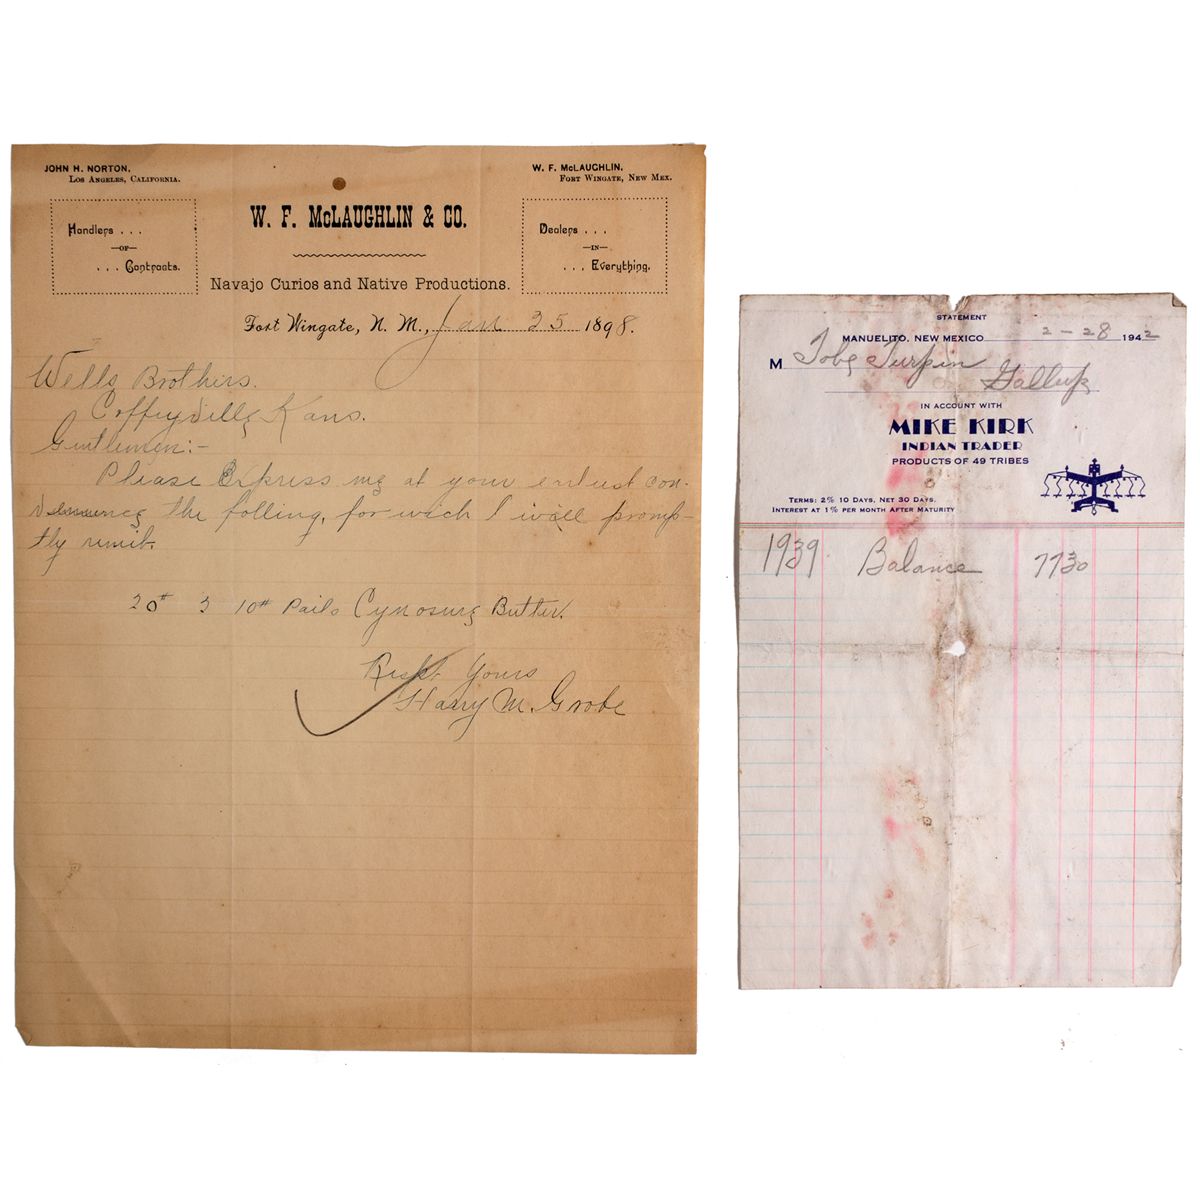 JOHN H. NORTON,
LOS ANGELES, CALIFORNIA.
W. F. McLAUGHLIN,
FORT WINGATE, NEW MEX.
Handlers . . .
—OF—
. . . Contracts.
W. F. McLAUGHLIN & CO.
Dealers . . .
—IN—
. . . Everything.
Navajo Curios and Native Productions.
Fort Wingate, N. M., Jan 25 1898.
Wells Brothers.
Coffeyville Kans.
Gentlemen:-
Please Express me at your earliest con-
the folling, for wich I will promp-
tly remit.
20# 3 10# Pails Cynosure Butter.
Respt Yours
Harry M. Grobe
STATEMENT
MANUELITO, NEW MEXICO 2-28 1942
M Tobe Turpin
Gallup
IN ACCOUNT WITH
MIKE KIRK
INDIAN TRADER
PRODUCTS OF 49 TRIBES
TERMS: 2% 10 DAYS, NET 30 DAYS.
INTEREST AT 1% PER MONTH AFTER MATURITY
1939 Balance 7730